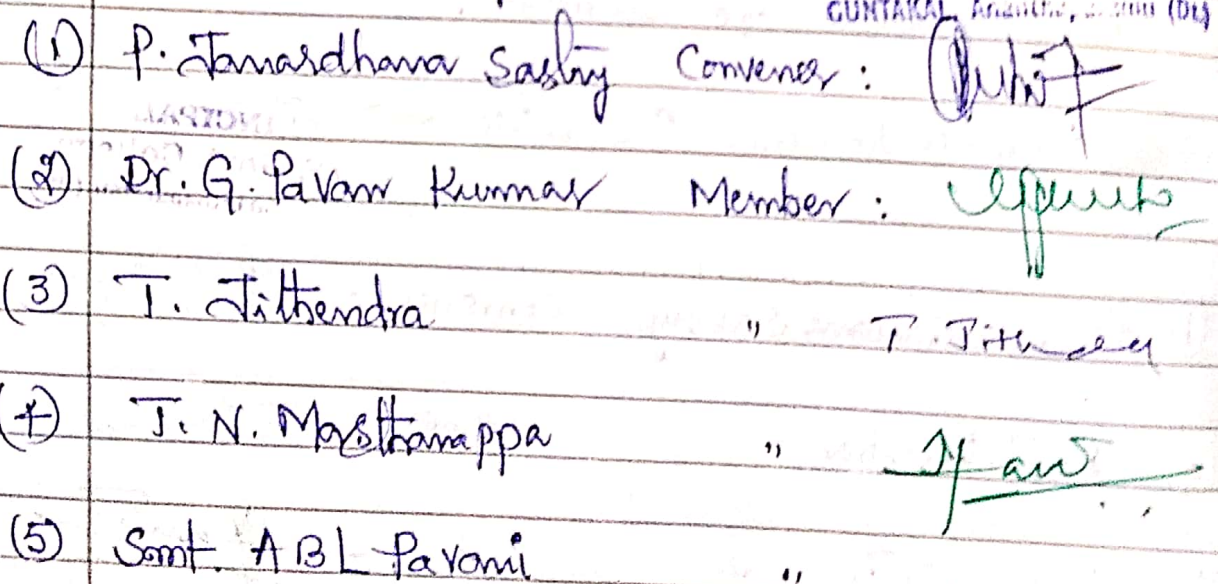 GUNTAKAL
(1) P. Janardhana Sastry Convener :
(2) Dr. G. Pavan Kumar Member :
(3) T. Jithendra " T. Jithendra
(4) T. N. Masthanappa "
(5) Smt. A B L Pavani "